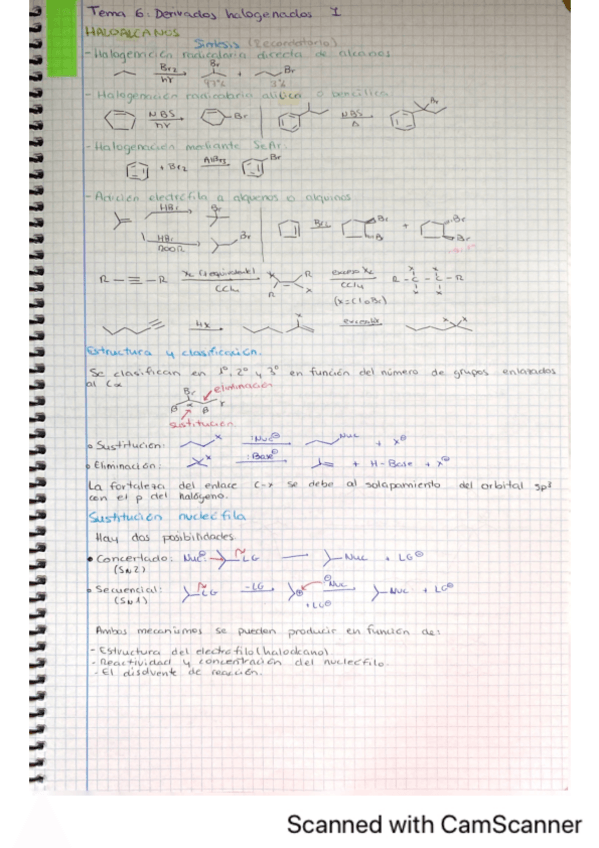 Tema 6: Derivados halogenados I
HALOALCANOS
Síntesis (Recordatorio)
- Halogenación radicalaria directa de alcanos
Br2 hr Br 97% + Br 3%
- Halogenación radicalaria alílica o bencílica
NBS hr Br NBS Δ Br
- Halogenación mediante SEAr.
+ Br2 AlBr3 Br
- Adición electrófila a alquenos o alquinos
HBr Br Br2 Br Br + Br Br
HBr ROOR Br
R-≡-R X2 (1 equivalente) CCl4 X R R X exceso X2 CCl4 (X=Cl o Br) R-C-C-R X X X X
HX X exceso HX X X
Estructura y clasificación.
Se clasifican en 1º, 2º y 3º en función del número de grupos enlazados
al Cα
Br eliminación
β α β
sustitución
• Sustitución: X :Nuc⊖ Nuc + X⊖
• Eliminación: X :Base⊖ + H-Base + X⊖
La fortaleza del enlace C-X se debe al solapamiento del orbital sp3
con el p del halógeno.
Sustitución nucleófila
Hay dos posibilidades
• Concertado: Nuc⊖: LG Nuc + LG⊖
(SN2)
• Secuencial: LG -LG ⊕ ⊖Nuc Nuc + LG⊖
(SN1) + LG⊖
Ambos mecanismos se pueden producir en función de:
- Estructura del electrófilo (haloalcano)
- Reactividad y concentración del nucleófilo.
- El disolvente de reacción.
Scanned with CamScanner